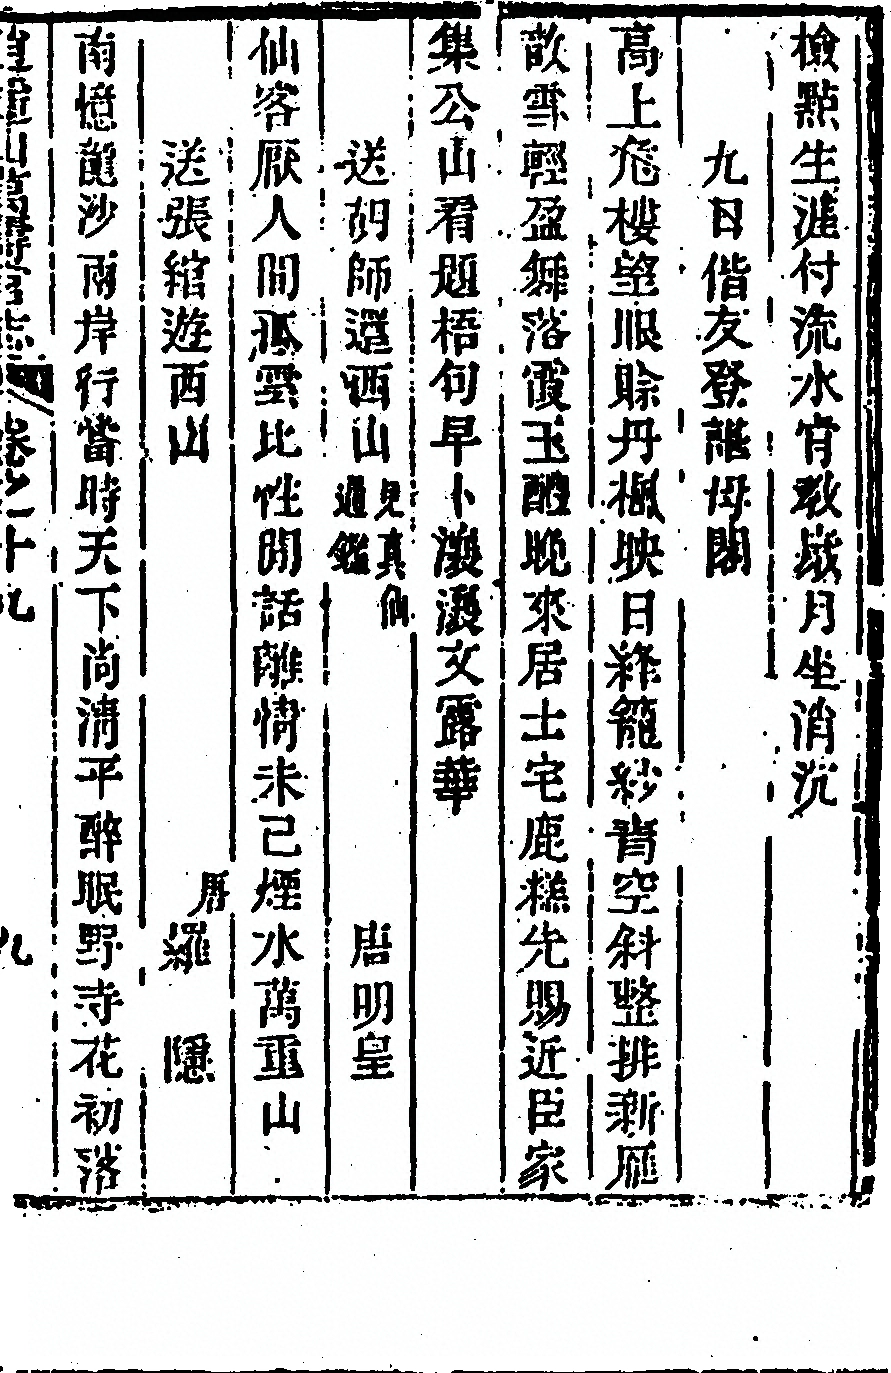 檢點生涯付流水肯教嵗月坐消沉
九日偕友登諶母閣
高上危樓望眼賒丹楓映日絳籠紗青空斜整排新鴈
歆雪輕盈舞落霞玉醴晚來居士宅鹿糕先賜近臣家
集公山看題梧句早卜瀼瀼文露華
送胡師還西山 見真仙通鑑 唐明皇
仙客厭人間孤雲比性閒話離情未已煙水萬重山
送張綰遊西山 唐羅隱
南憶龍沙兩岸行當時天下尚清平醉眠野寺花初落
逍遙山萬壽宮志 卷之十九 九